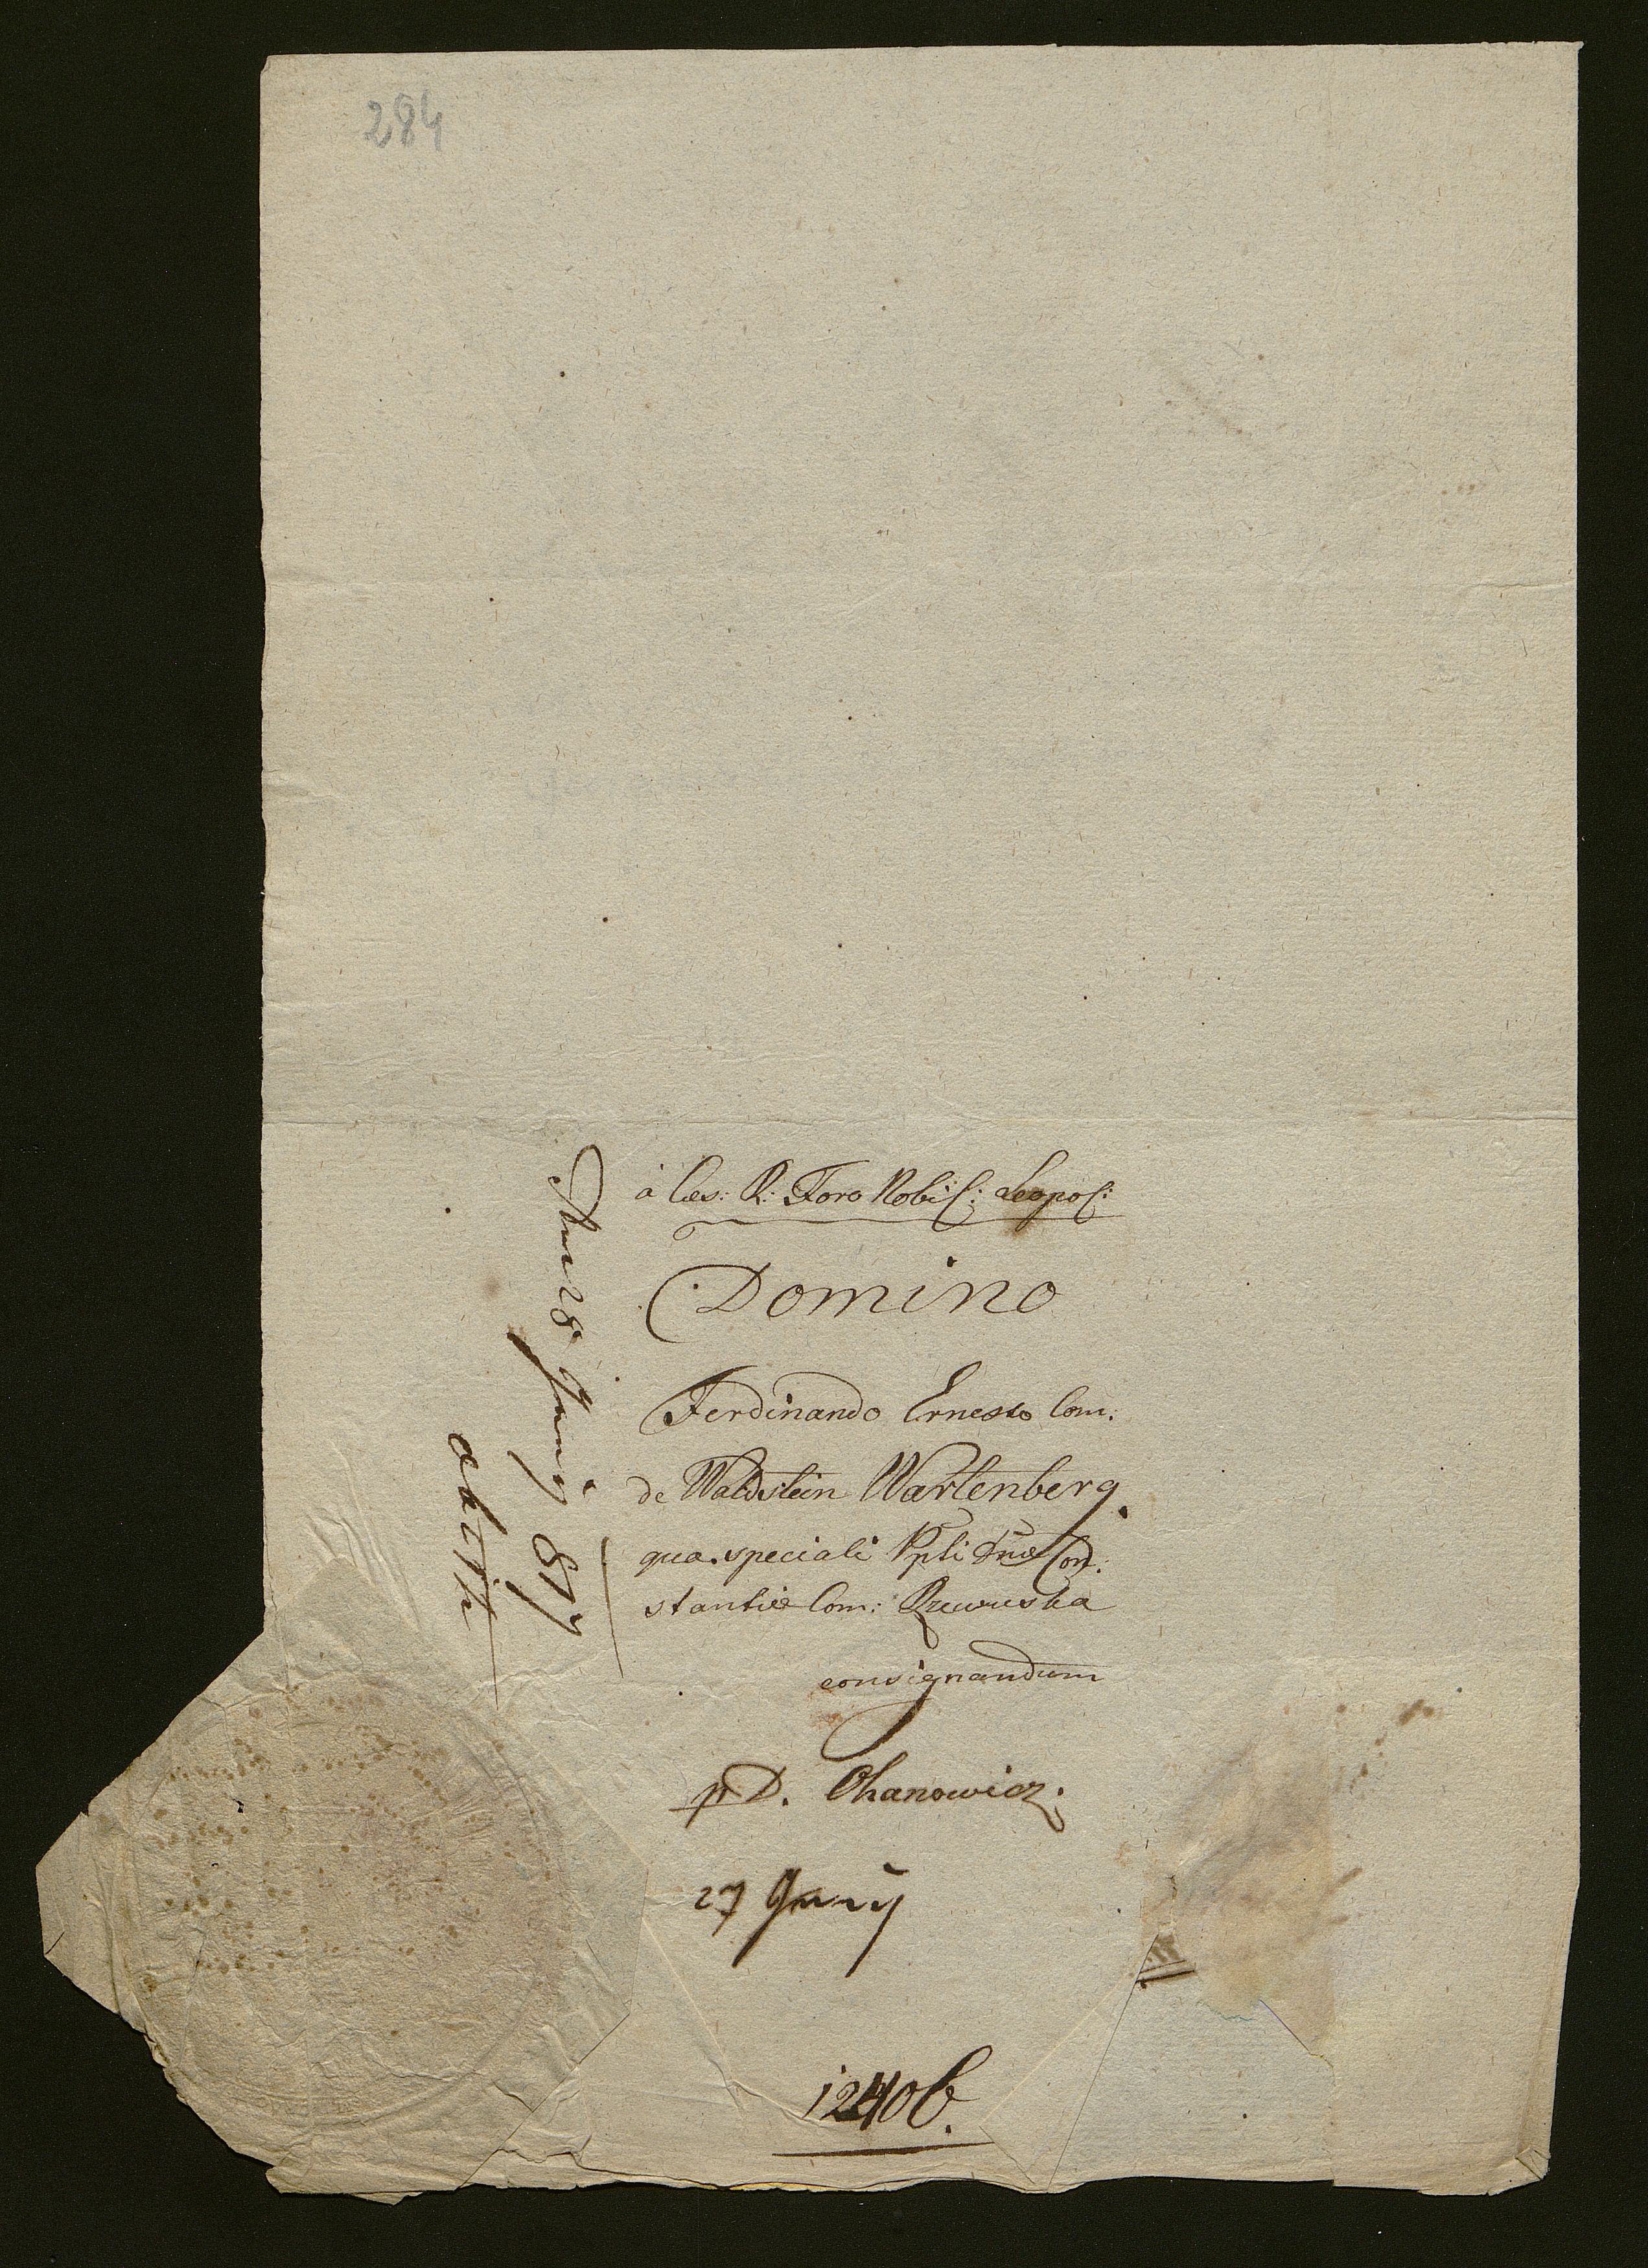 284
à Cæs: R: Foro Nobil: Leopol:
Domino
Ferdinando Ernesto Com:
de Waldstein Wartenberg
qua speciali Pptli Dnæ Con:
stantiæ Com: Rzewuska
consignandum
p D. Ohanowicz.
27 Junij
1240b.
28 Junij 817